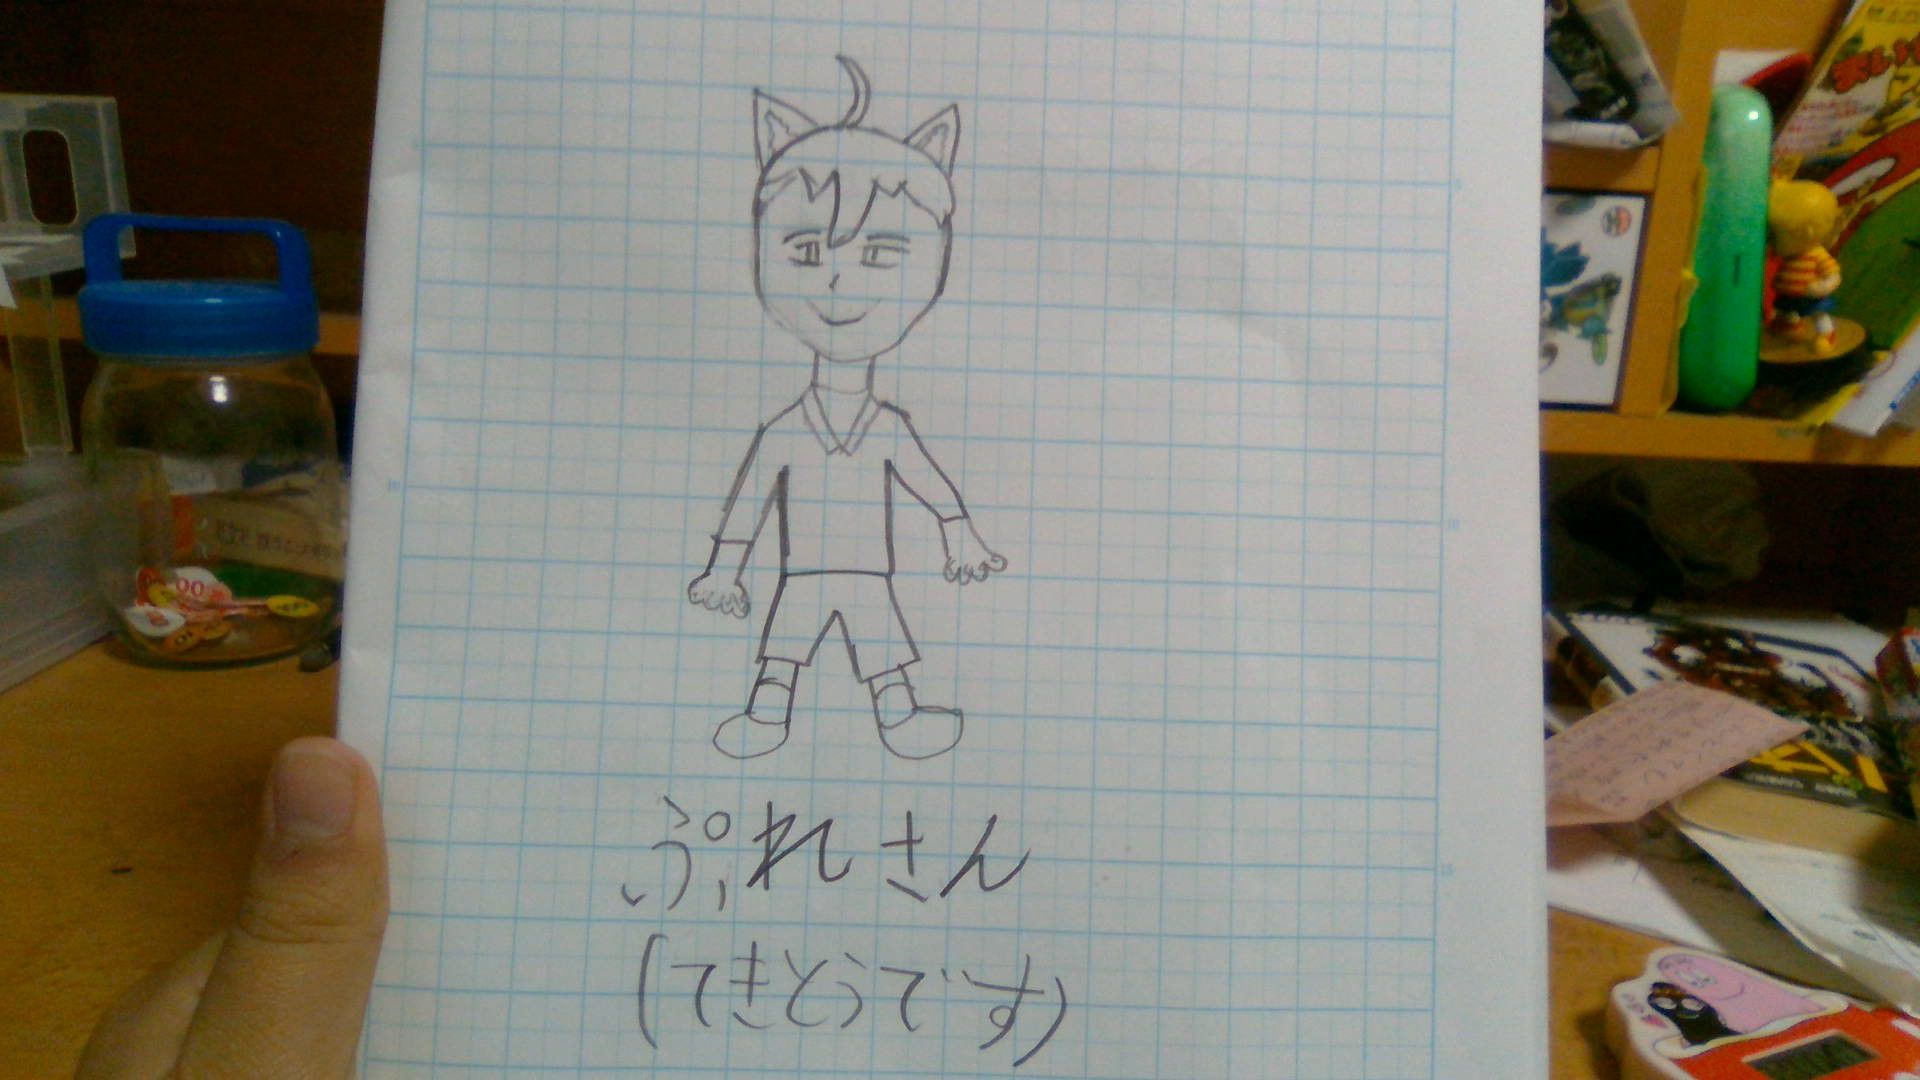 ぷれさん
(てきとうです)